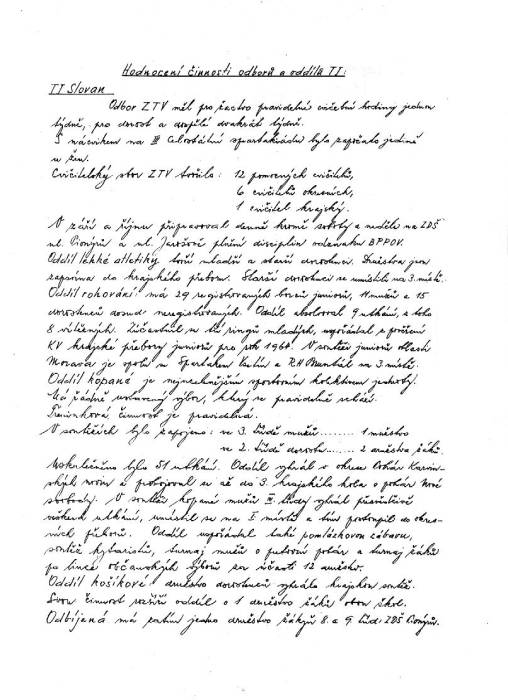 Hodnocení činnosti odborů a oddílů TJ:
TJ Slovan
Odbor ZTV měl pro žactvo pravidelné cvičební hodiny jednou
týdně, pro dorost a dospělé dvakrát týdně.
S nácvikem na III Celostátní spartakiádu bylo započato jedině
u žen.
Cvičitelský sbor ZTV tvořilo: 12 pomocných cvičitelů,
6 cvičitelů okresních,
1 cvičitel krajský.
V září a říjnu připravoval denně kromě soboty a neděle na ZDŠ
ul. Pionýrů a ul. Jarošově plnění disciplin odznaku BPPOV.
Oddíl lehké atletiky tvoří mladší a starší dorostenci. Družstva jsou
zapojena do krajského přeboru. Starší dorostenci se umístili na 3. místě.
Oddíl rohování: má 29 registrovaných boxerů juniorů, mužů a 15
dorostenců dosud neregistrovaných. Oddíl absolvoval 9 utkání, z toho
8 vítězných. Zúčastnil se tří ringů mladých, uspořádal z pověření
KV krajské přebory juniorů pro rok 1964. V soutěži juniorů oblasti
Morava je spolu se Spartakem Vsetín a RH Bruntál na 3. místě.
Oddíl kopané je nejpočetnějším sportovním kolektivem jednoty.
Má řádně ustavený výbor, který se pravidelně schází.
Tréninková činnost je pravidelná.
V soutěžích bylo zapojeno: ve 3. třídě mužů........ 1 mužstvo
ve 2. třídě dorostu....... 2 mužstva žáků.
Uskutečněno bylo 51 utkání. Oddíl vyhrál v okrese Pohár Karvin-
ských novin a probojoval se až do 3. krajského kola o pohár Nové
svobody. V soutěži kopané mužů III. třídy vyhrál přesvědčivě
všechna utkání, umístil se na I. místě a tím postoupil do okres-
ních přeborů. Oddíl uspořádal také pomlázkovou zábavu,
soutěž kytaristů, turnaj mužů o putovní pohár a turnaj žáků
po linii občanských výborů za účasti 12 mužstev.
Oddíl košíkové: družstvo dorostenců vyhrálo krajskou soutěž.
Svou činnost rozšířil oddíl o 1 družstvo žáků obou škol.
Odbíjená má zatím jedno družstvo žákyň 8. a 9. tříd: ZDŠ Pionýrů.